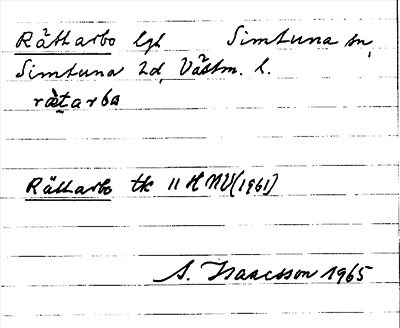 Rättarbo lgh Simtuna sn,
Simtuna hd, Västm. l.
rä̀ṯarbα
Rättarbo tk 11 H NV (1961)
S. Isaacsson 1965